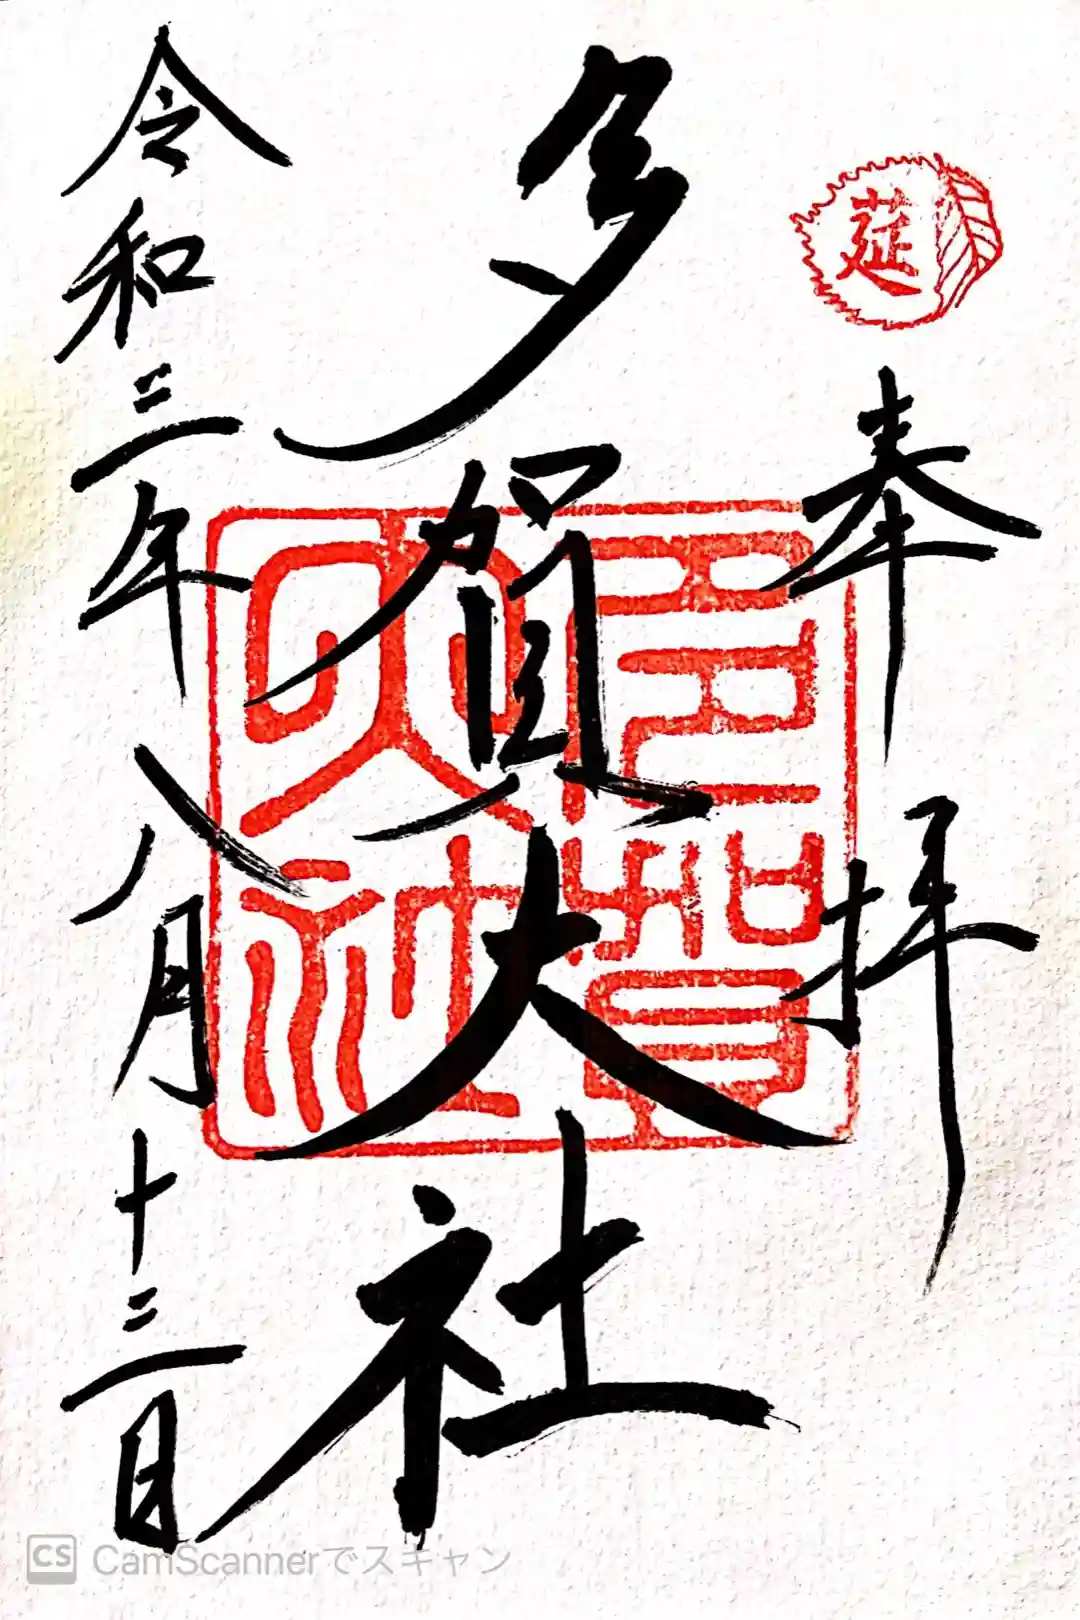 莚
奉拝
多賀大社
多賀大社
令和三年八月十三日
CS CamScannerでスキャン